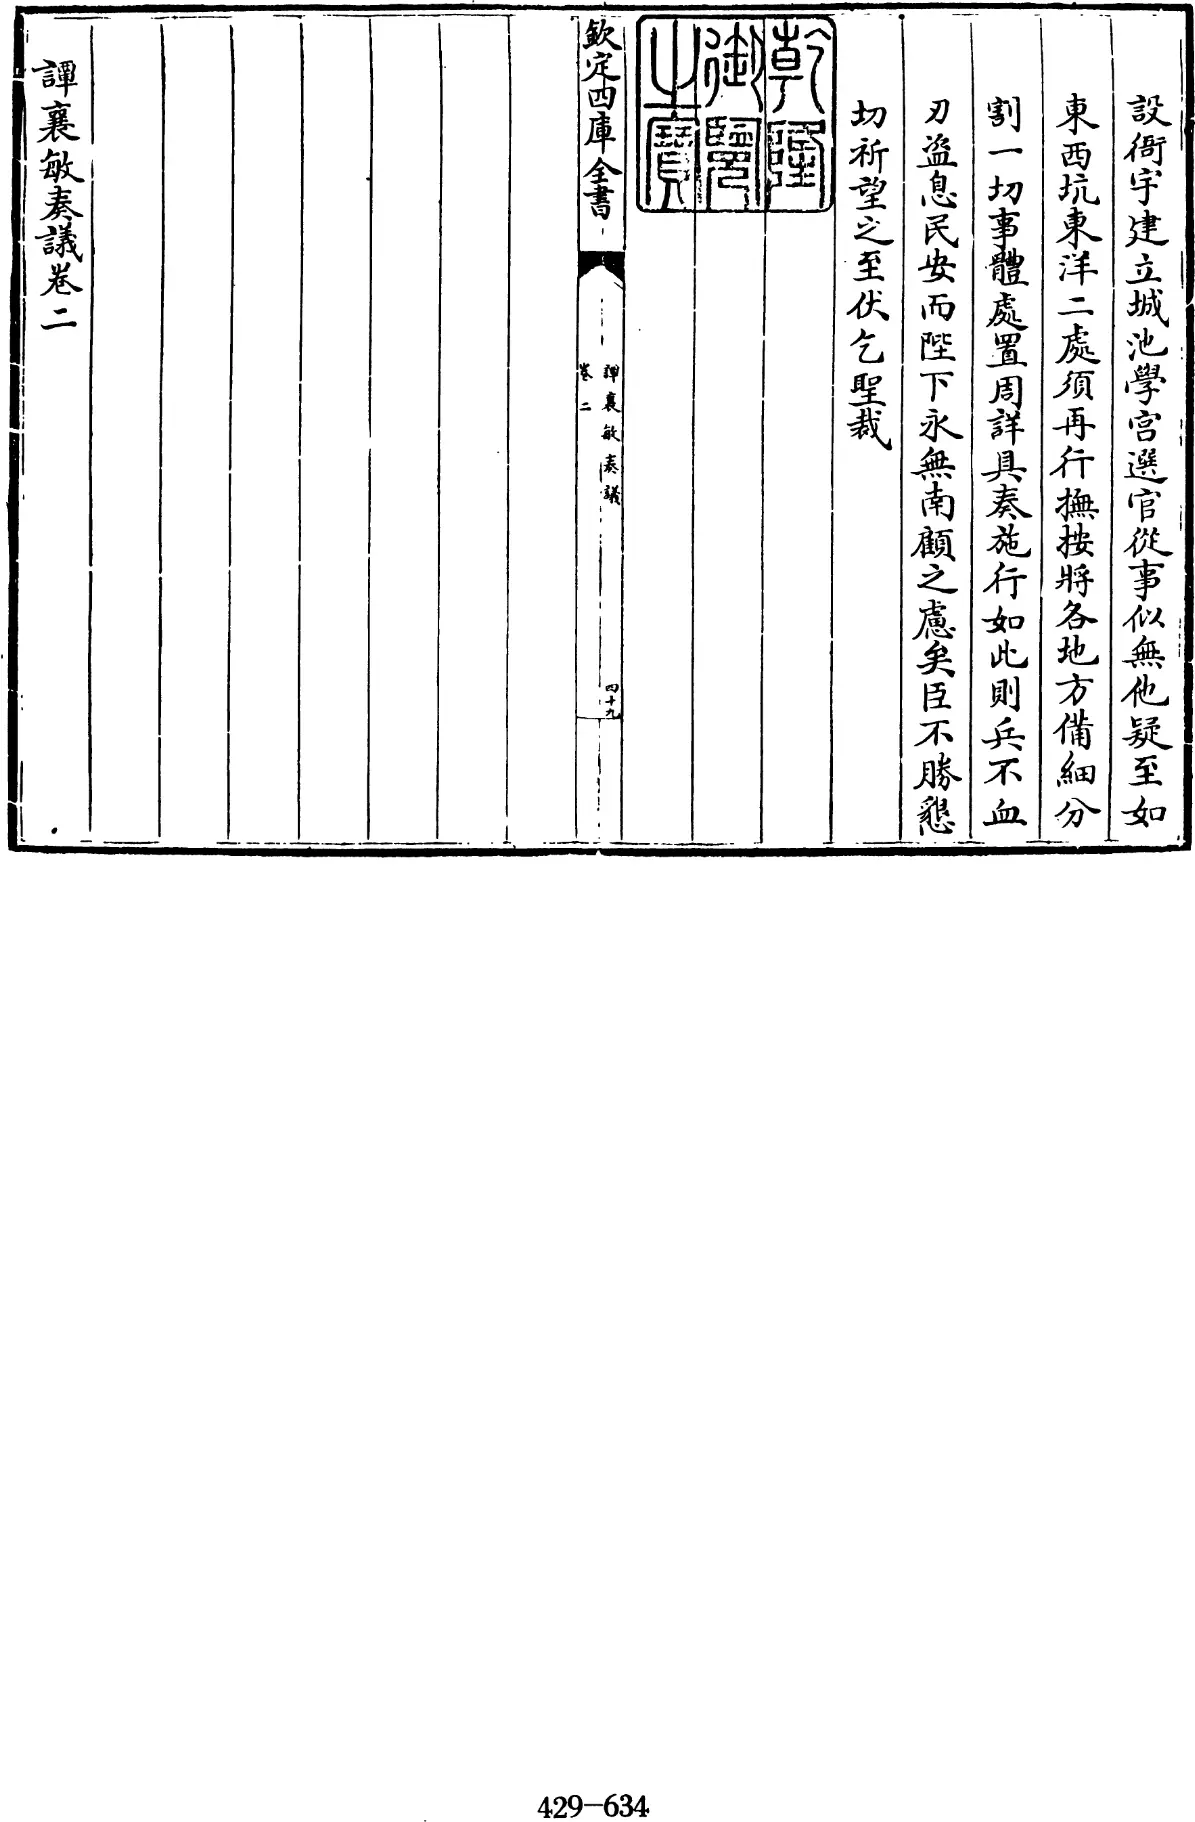 設衙宇建立城池學宮選官從事似無他疑至如
東西坑東洋二處須再行撫按將各地方備細分
割一切事體處置周詳具奏施行如此則兵不血
刃盜息民安而陛下永無南顧之慮矣臣不勝懇
切祈望之至伏乞聖裁
乾隆
御覽
之寶
欽定四庫全書
譚襄敏奏議
卷二
四十九
譚襄敏奏議卷二
429-634